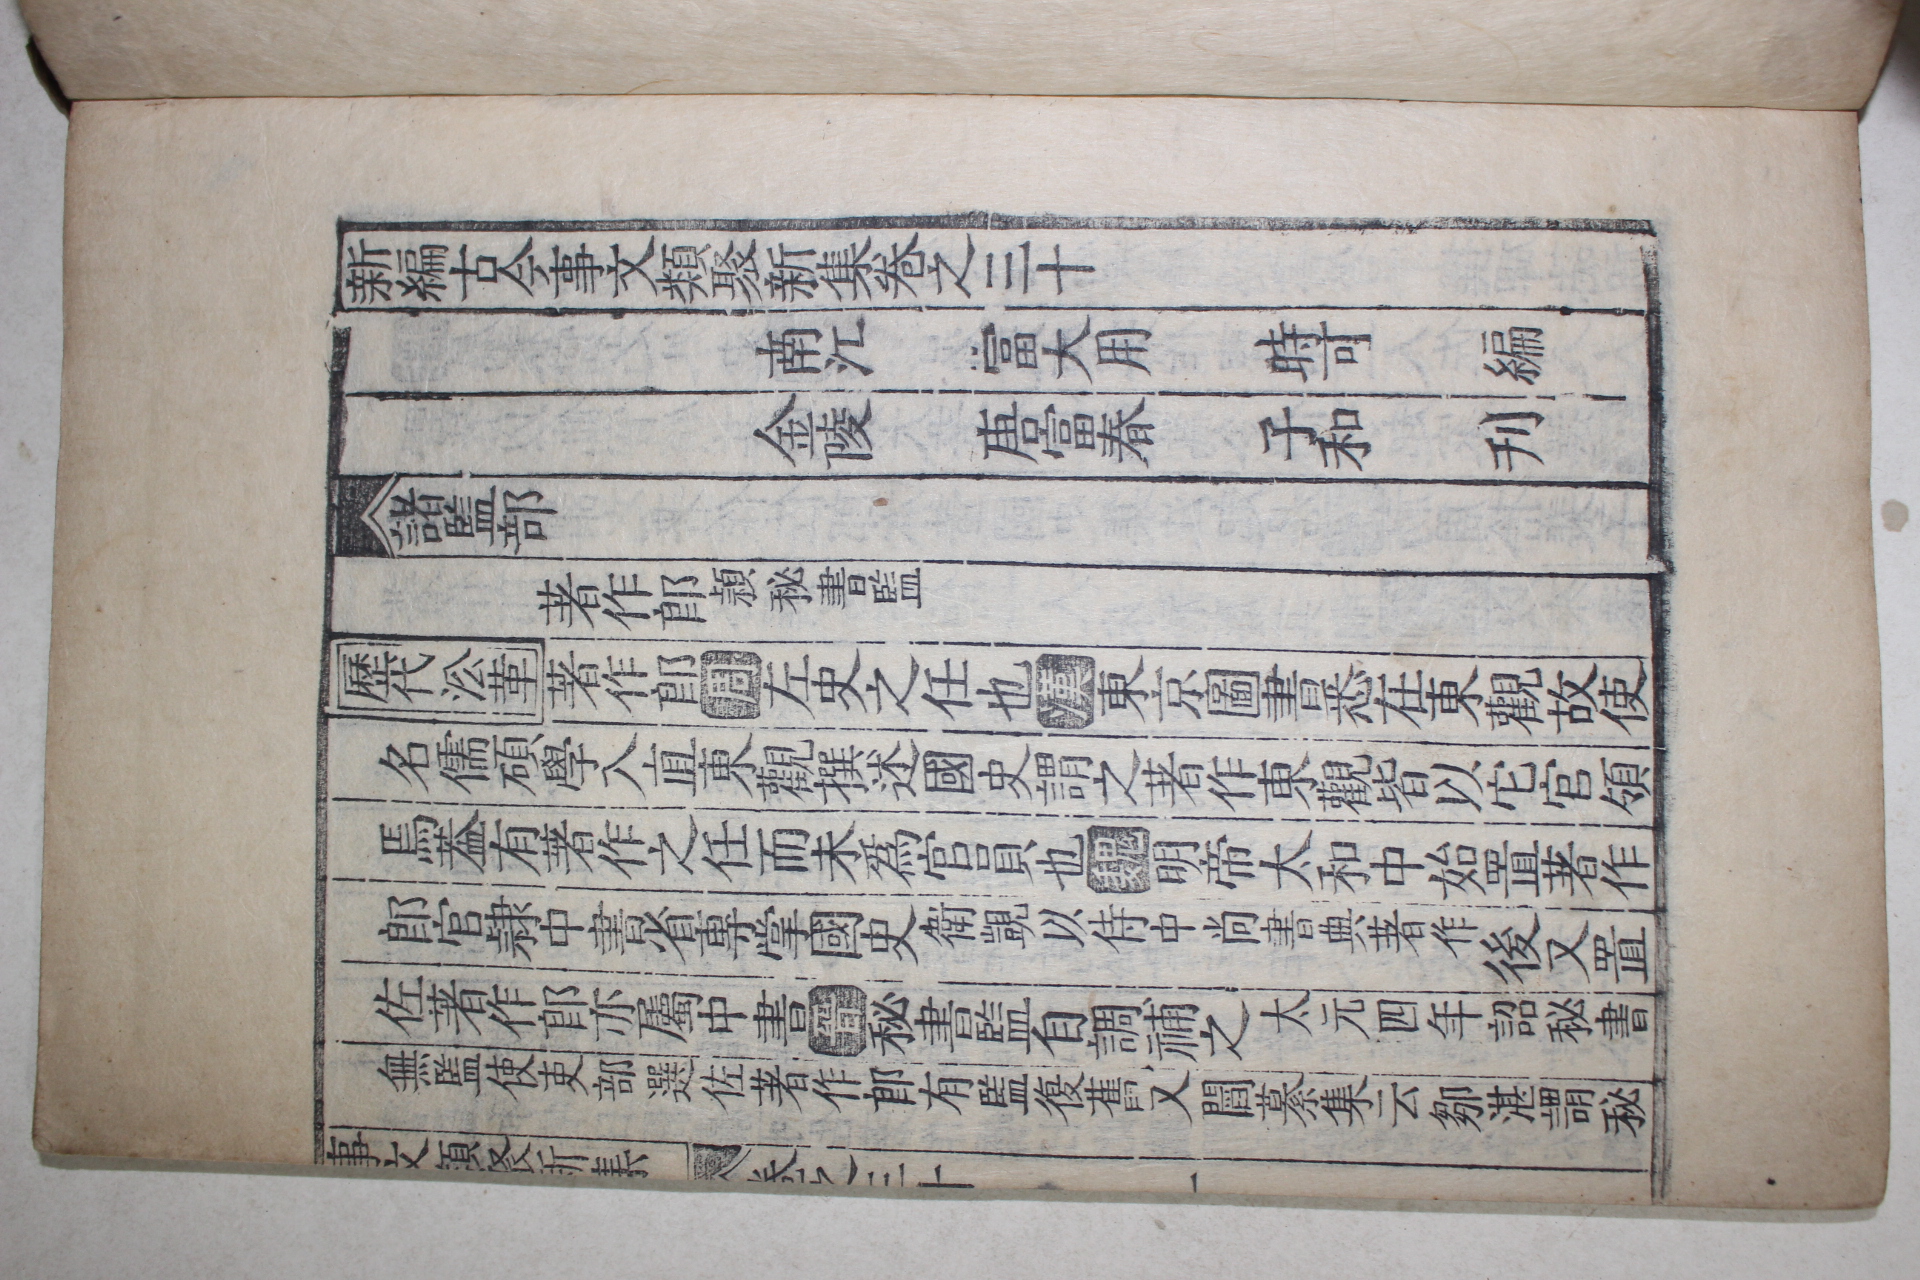 新編古今事文類聚新集卷之三十
南江 富大用 時可 編
金陵 唐富春 子和 刋
諸監部
著作郎 頴秘書監
歷代沿革 著作郎周左史之任也漢東京圖書悉在東觀故使
名儒碩學入直東觀撰述國史謂之著作東觀皆以它官領
焉葢有著作之任而未爲官員也魏明帝太和中始置著作
郎官隷中書省專掌國史衛覬以侍中尚書典著作後又置
佐著作郎亦屬中書晉秘書監自調補之太元四年詔秘書
無監使吏部選佐著作郎有監復舊又閻纂集云鄒湛謂秘
事文類聚新集 卷之三十 一